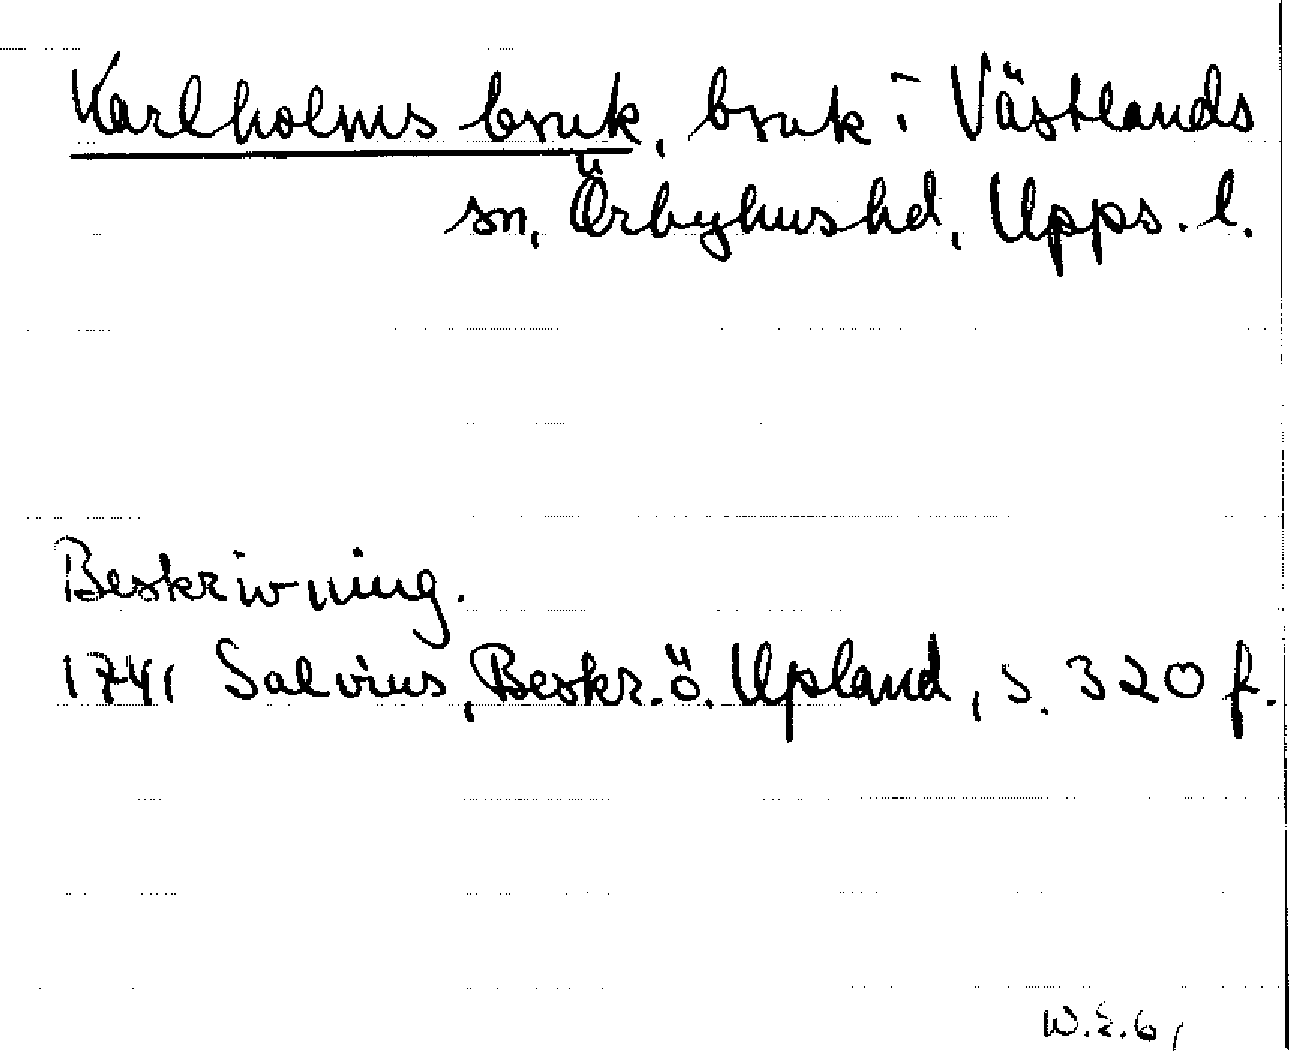 Karlholms bruk, bruk i Västlands
sn, Örbyhus hd, Upps. l.
Beskrivning.
1741 Salvius, Beskr. ö. Upland, s. 320 f.
W.E.61